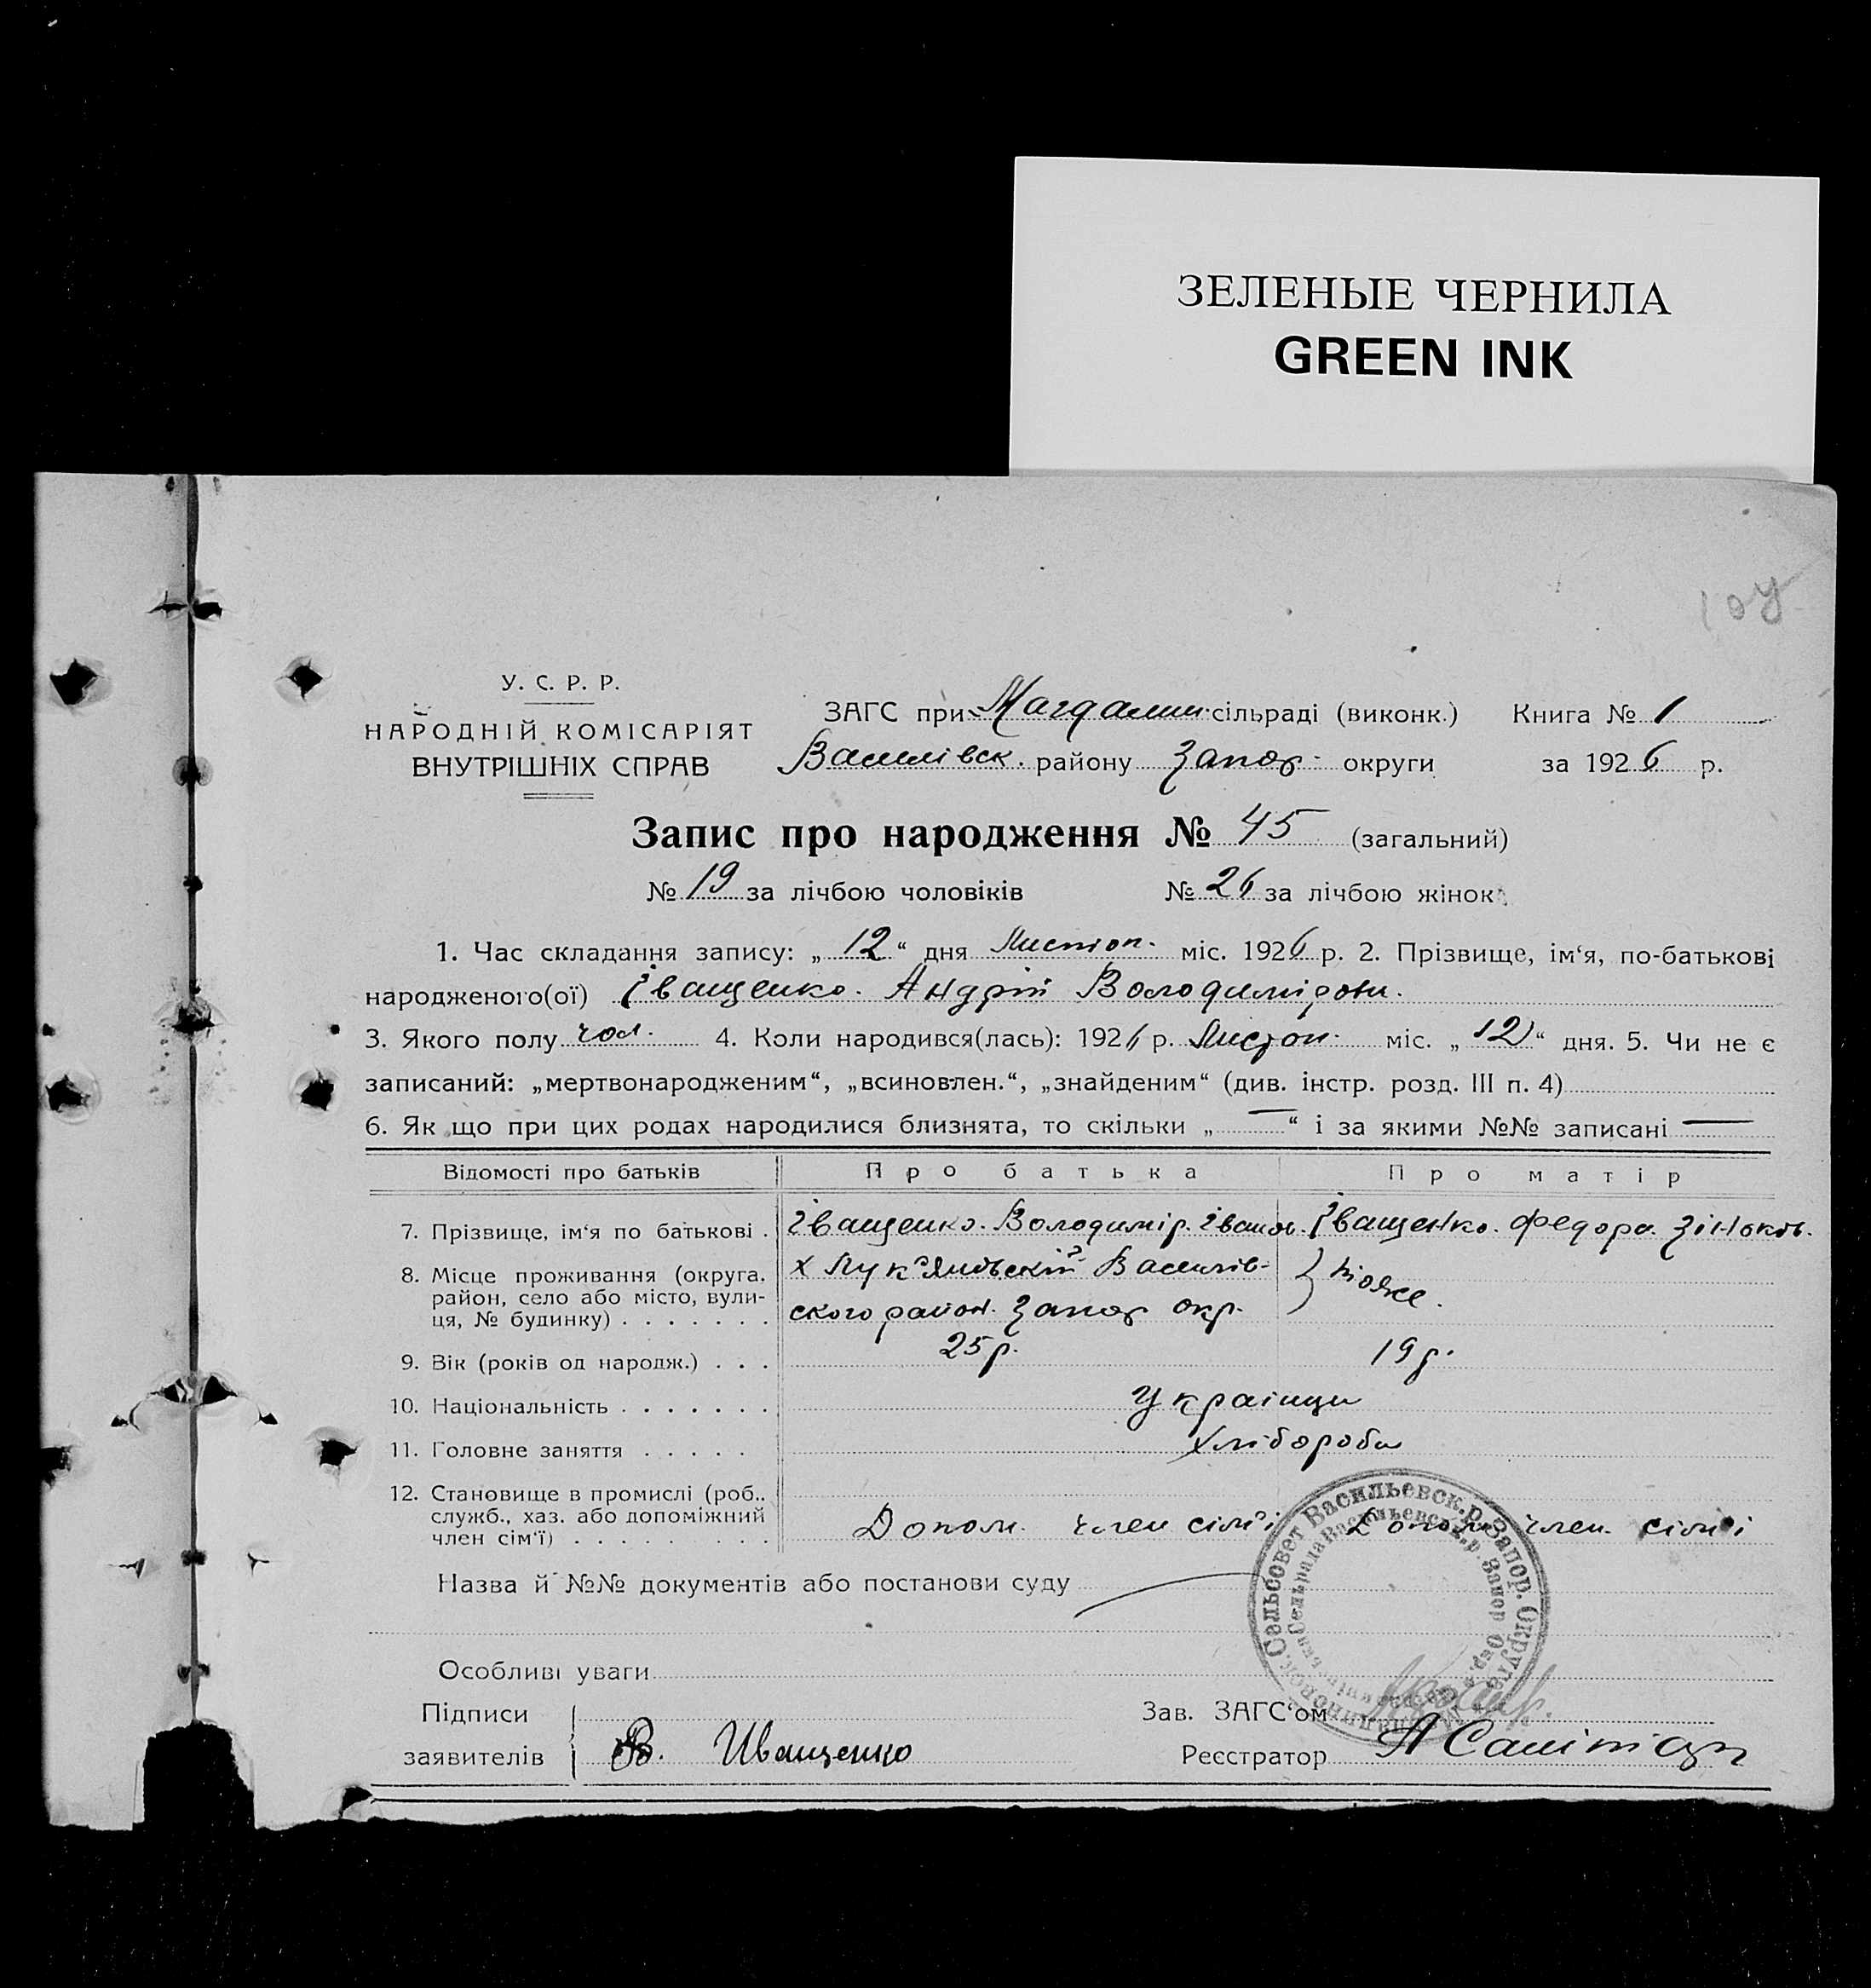 ЗЕЛЕНЫЕ ЧЕРНИЛА
GREEN INK
У. С. Р. Р.
НАРОДНІЙ КОМІСАРІЯТ
ВНУТРІШНІХ СПРАВ
ЗАГС при Магдалин. сільраді (виконк.) Книга № 1
Василівск. району Запор. округи за 1926 р.
Запис про народження № 45 (загальний)
№ 19 за лічбою чоловіків № 26 за лічбою жінок
1. Час складання запису: „12“ дня Листоп. міс. 1926 р. 2. Прізвище, ім‘я, по-батькові
народженого(ої) Іващенко. Андрій Володимірови.
3. Якого полу чол. 4. Коли народився(лась): 1926 р. Листоп. міс. „12“ дня. 5. Чи не є
записаний: „мертвонародженим“, „всиновлен.“, „знайденим“ (див. інстр. розд. III п. 4)
6. Як що при цих родах народилися близнята, то скільки „—“ і за якими №№ записані —
Відомості про батьків Про батька Про матір
7. Прізвище, ім‘я по батькові . Іващенко. Володимір. Іванов. Іващенко. Федора.
8. Місце проживання (округа. район, село або місто, вулиця, № будинку) . . . . . . . х Лук'янівській Василів-
ского район. Запор окр. тоже.
9. Вік (років од народж.) . . . 25 р. 19 р.
10. Національність . . . . . . . Українци
11. Головне заняття . . . . . Хлібороби
12. Становище в промислі (роб..
служб., хаз. або допоміжний
член сім‘ї) . . . . . . . . . Допом. член сімʼі Допом член. сімʼі
Назва й №№ документів або постанови суду
Особливі уваги
Підписи
заявителів В. Иващенко
Зав. ЗАГС‘ом
Реєстратор
Сельсовет Васильевск. р. Запор. Округа
Сельрада Васильевськ. р. Запор Окр.